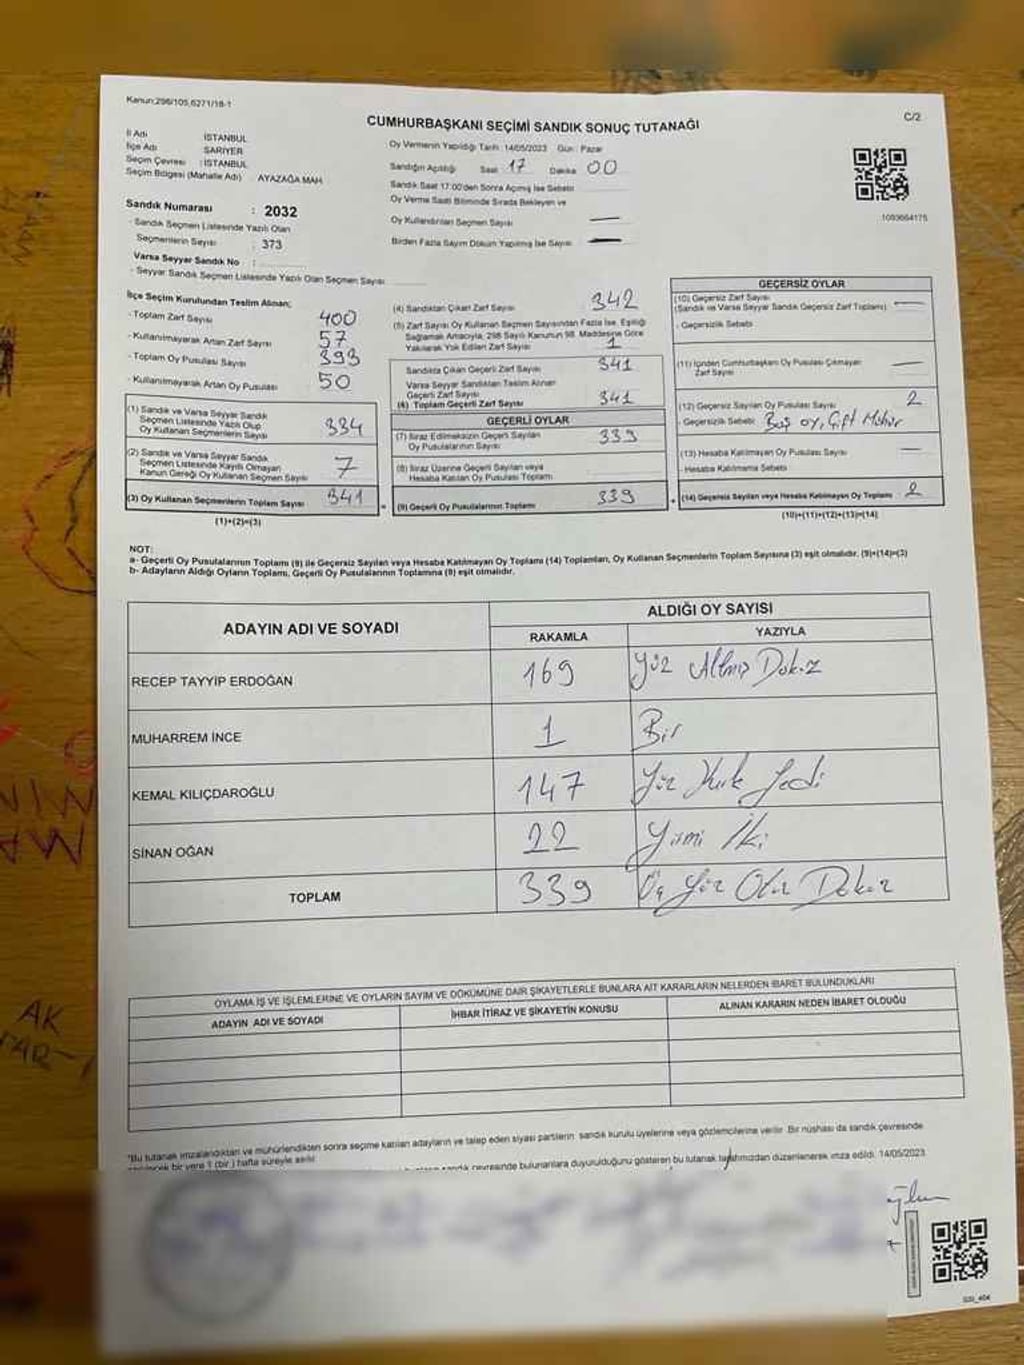 Kanun;298/105,6271/18-1
C/2
CUMHURBAŞKANI SEÇİMİ SANDIK SONUÇ TUTANAĞI
İl Adı İSTANBUL
İlçe Adı SARIYER
Seçim Çevresi : İSTANBUL
Seçim Bölgesi (Mahalle Adı) AYAZAĞA MAH.
Oy Vermenin Yapıldığı Tarih : 14/05/2023 Gün : Pazar
Sandığın Açıldığı Saat 17 Dakika 00
Sandık Saat 17:00'den Sonra Açılmış İse Sebebi
Oy Verme Saati Bitiminde Sırada Bekleyen ve
Oy Kullandırılan Seçmen Sayısı —
Birden Fazla Sayım Döküm Yapılmış İse Sayısı —
1093664175
Sandık Numarası : 2032
- Sandık Seçmen Listesinde Yazılı Olan
Seçmenlerin Sayısı : 373
Varsa Seyyar Sandık No :
- Seyyar Sandık Seçmen Listesinde Yazılı Olan Seçmen Sayısı
İlçe Seçim Kurulundan Teslim Alınan;
- Toplam Zarf Sayısı 400
- Kullanılmayarak Artan Zarf Sayısı 57
- Toplam Oy Pusulası Sayısı 393
- Kullanılmayarak Artan Oy Pusulası 50
(1) Sandık ve Varsa Seyyar Sandık
Seçmen Listesinde Yazılı Olup
Oy Kullanan Seçmenlerin Sayısı 334
(2) Sandık ve Varsa Seyyar Sandık
Seçmen Listesinde Kayıtlı Olmayan
Kanun Gereği Oy Kullanan Seçmen Sayısı 7
(3) Oy Kullanan Seçmenlerin Toplam Sayısı 341
(1)+(2)=(3)
(4) Sandıktan Çıkan Zarf Sayısı 342
(5) Zarf Sayısı Oy Kullanan Seçmen Sayısından Fazla İse, Eşitliği
Sağlamak Amacıyla, 298 Sayılı Kanunun 98. Maddesine Göre
Yakılarak Yok Edilen Zarf Sayısı 1
Sandıkta Çıkan Geçerli Zarf Sayısı 341
Varsa Seyyar Sandıktan Teslim Alınan
Geçerli Zarf Sayısı
(6) Toplam Geçerli Zarf Sayısı 341
GEÇERLİ OYLAR
(7) İtiraz Edilmeksizin Geçerli Sayılan
Oy Pusulalarının Sayısı 339
(8) İtiraz Üzerine Geçerli Sayılan veya
Hesaba Katılan Oy Pusulası Toplamı
(9) Geçerli Oy Pusulalarının Toplamı 339
GEÇERSİZ OYLAR
(10) Geçersiz Zarf Sayısı
(Sandık ve Varsa Seyyar Sandık Geçersiz Zarf Toplamı) —
- Geçersizlik Sebebi
(11) İçinden Cumhurbaşkanı Oy Pusulası Çıkmayan
Zarf Sayısı —
(12) Geçersiz Sayılan Oy Pusulası Sayısı 2
- Geçersizlik Sebebi Boş oy, Çift Mühür
(13) Hesaba Katılmayan Oy Pusulası Sayısı —
- Hesaba Katılmama Sebebi
(14) Geçersiz Sayılan veya Hesaba Katılmayan Oy Toplamı 2
(10)+(11)+(12)+(13)=(14)
NOT:
a- Geçerli Oy Pusulalarının Toplamı (9) ile Geçersiz Sayılan veya Hesaba Katılmayan Oy Toplamı (14) Toplamları, Oy Kullanan Seçmenlerin Toplam Sayısına (3) eşit olmalıdır. (9)+(14)=(3)
b- Adayların Aldığı Oyların Toplamı, Geçerli Oy Pusulalarının Toplamına (9) eşit olmalıdır.
ADAYIN ADI VE SOYADI ALDIĞI OY SAYISI
RAKAMLA YAZIYLA
RECEP TAYYİP ERDOĞAN 169 Yüz Altmış Dokuz
MUHARREM İNCE 1 Bir
KEMAL KILIÇDAROĞLU 147 Yüz Kırk Yedi
SİNAN OĞAN 22 Yirmi İki
TOPLAM 339 Üç Yüz Otuz Dokuz
OYLAMA İŞ VE İŞLEMLERİNE VE OYLARIN SAYIM VE DÖKÜMÜNE DAİR ŞİKAYETLERLE BUNLARA AİT KARARLARIN NELERDEN İBARET BULUNDUKLARI
ADAYIN ADI VE SOYADI İHBAR İTİRAZ VE ŞİKAYETİN KONUSU ALINAN KARARIN NEDEN İBARET OLDUĞU
*Bu tutanak imzalandıktan ve mühürlendikten sonra seçime katılan adayların ve talep eden siyasi partilerin sandık kurulu üyelerine veya gözlemcilerine verilir. Bir nüshası da sandık çevresinde
bir yere 1 (bir) hafta süreyle asılır.
sandık çevresinde bulunanlara duyurulduğunu gösteren bu tutanak tarafımızdan düzenlenerek imza edildi. 14/05/2023
AK